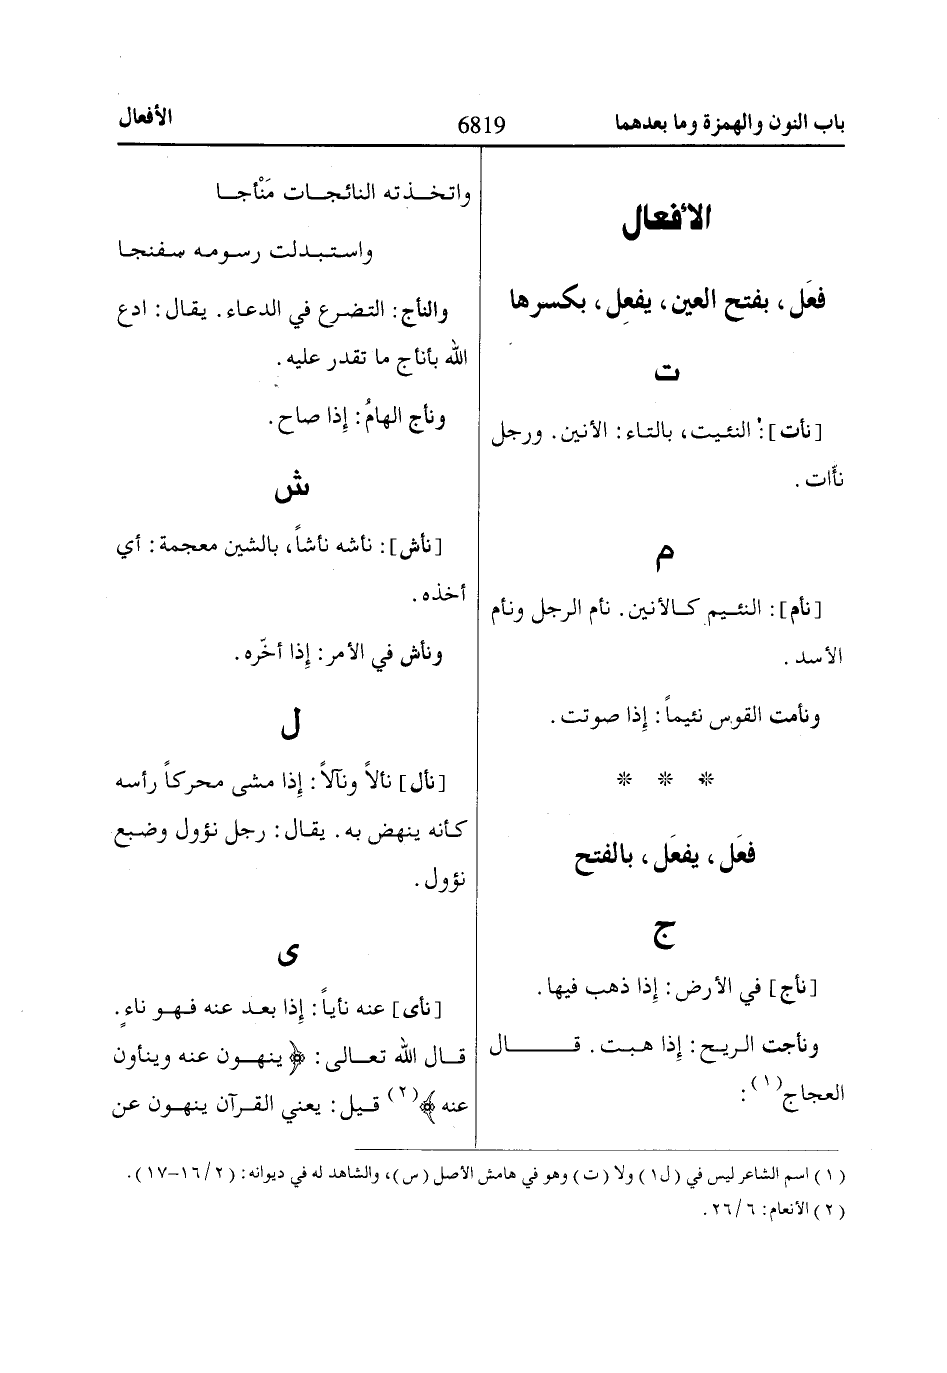 باب النون والهمزة وما بعدهما
6819
الأفعال
الأفعال
فعَل، بفتح العين، يفعِل، بكسرها
ت
[نأت]: النئيت، بالتاء: الأنين. ورجل
نأّات.
م
[نأم]: النئيم كالأنين. نأم الرجل ونأم
الأسد.
ونأمت القوس نئيماً: إذا صوتت.
* * *
فعَل، يفعَل، بالفتح
ج
[نأج] في الأرض: إذا ذهب فيها.
ونأجت الريح: إذا هبت. قال
العجاج(١):
واتخذته النائجات مَنْأجا
واستبدلت رسومه سفنجا
والنأج: التضرع في الدعاء. يقال: ادع
الله بأناج ما تقدر عليه.
ونأج الهامُ: إذا صاح.
ش
[نأش]: نأشه نأشاً، بالشين معجمة: أي
أخذه.
ونأش في الأمر: إذا أخّره.
ل
[نأل] نألاً ونآلاً: إذا مشى محركاً رأسه
كأنه ينهض به. يقال: رجل نؤول وضبع
نؤول.
ى
[نأى] عنه نأياً: إذا بعد عنه فهو ناءٍ.
قال الله تعالى: ﴿ينهون عنه وينأون
عنه﴾(٢) قيل: يعني القرآن ينهون عن
(١) اسم الشاعر ليس في (ل١) ولا (ت) وهو في هامش الأصل (س)، والشاهد له في ديوانه: (٢/١٦-١٧).
(٢) الأنعام: ٦/٢٦.